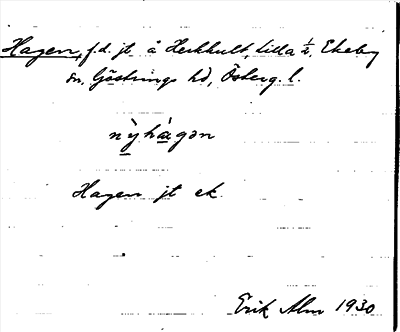 Hagen, f.d. jt å Herkhult, Lilla ½, Ekeby
sn, Göstrings hd, Österg. l.
nỳhágən
Hagen jt ek.
Erik Alm 1930